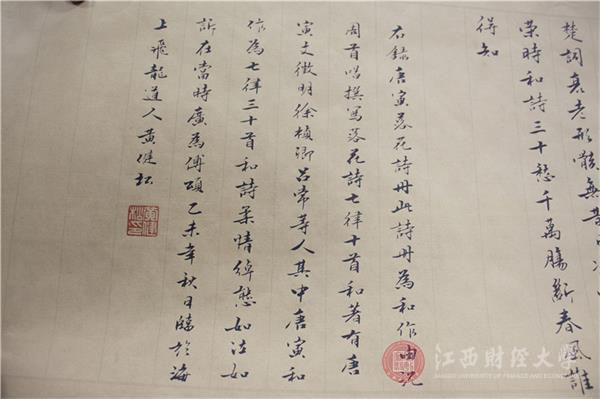 楚詞衰老形骸無昔日
榮時和詩三十愁千萬腸斷春風誰
得知
右錄唐寅落花詩冊此詩冊為和作由沈
周首唱撰寫落花詩七律十首和著有唐
寅文徵明徐禎卿呂常等人其中唐寅和
作為七律三十首和詩柔情綽態如泣如
訴在當時廣為傳頌乙未年秋日臨於海
上飛龍道人黃健松
江西财经大学
JIANGXI UNIVERSITY OF FINANCE AND ECONOMICS